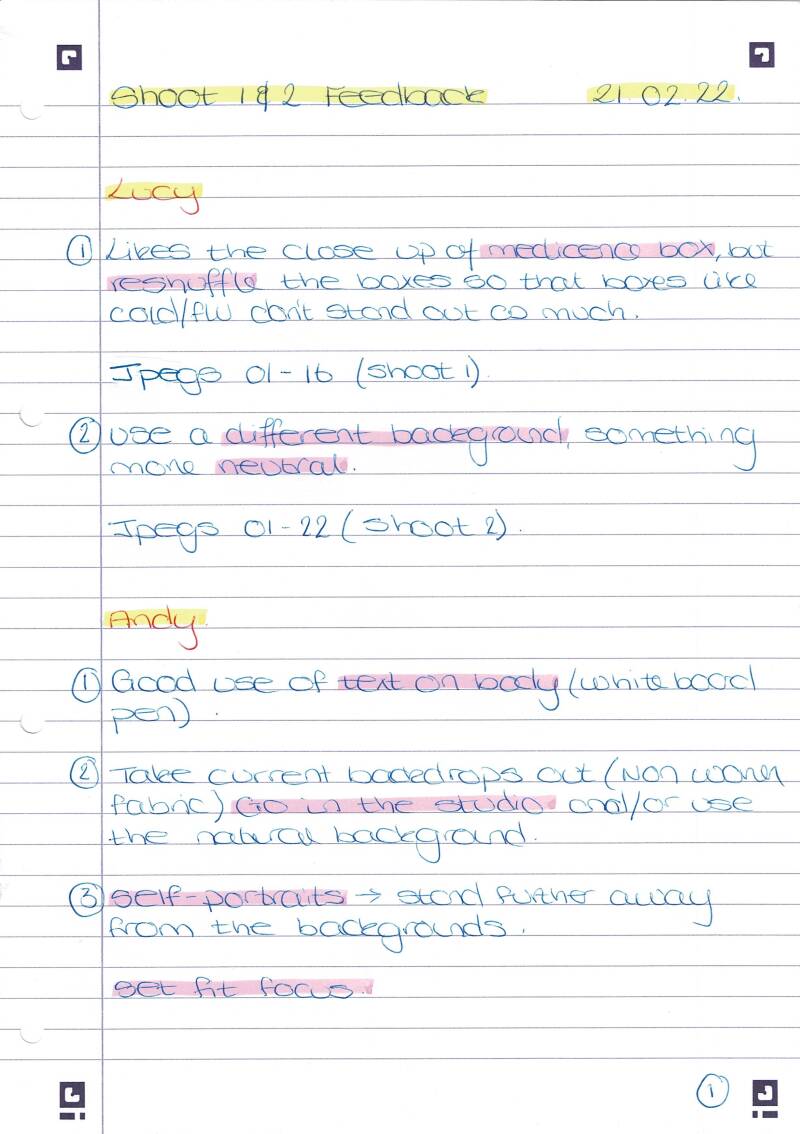 Shoot 1 & 2 Feedback 21.02.22.
Lucy
① Likes the close up of medicence box, but
reshuffle the boxes so that boxes like
cold/flu don't stand out so much.
Jpegs 01-16 (shoot 1)
② use a different background, something
more neutral.
Jpegs 01-22 (shoot 2).
Andy.
① Good use of text on body (whiteboard
pen).
② Take current backdrops out (Non woven
fabric) Go in the studio and/or use
the natural background.
③ self-portraits → stand further away
from the backgrounds.
set fit focus.
①